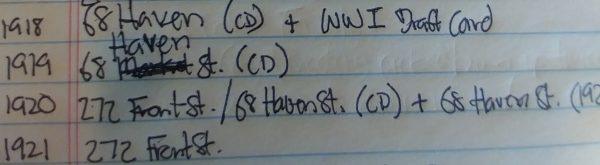 1918 68 Haven (CD) + WWI Draft Card
Haven
1919 68 St. (CD)
1920 272 Front St. / 68 Haven St. (CD) + 68 Haven St. (192
1921 272 Front St.